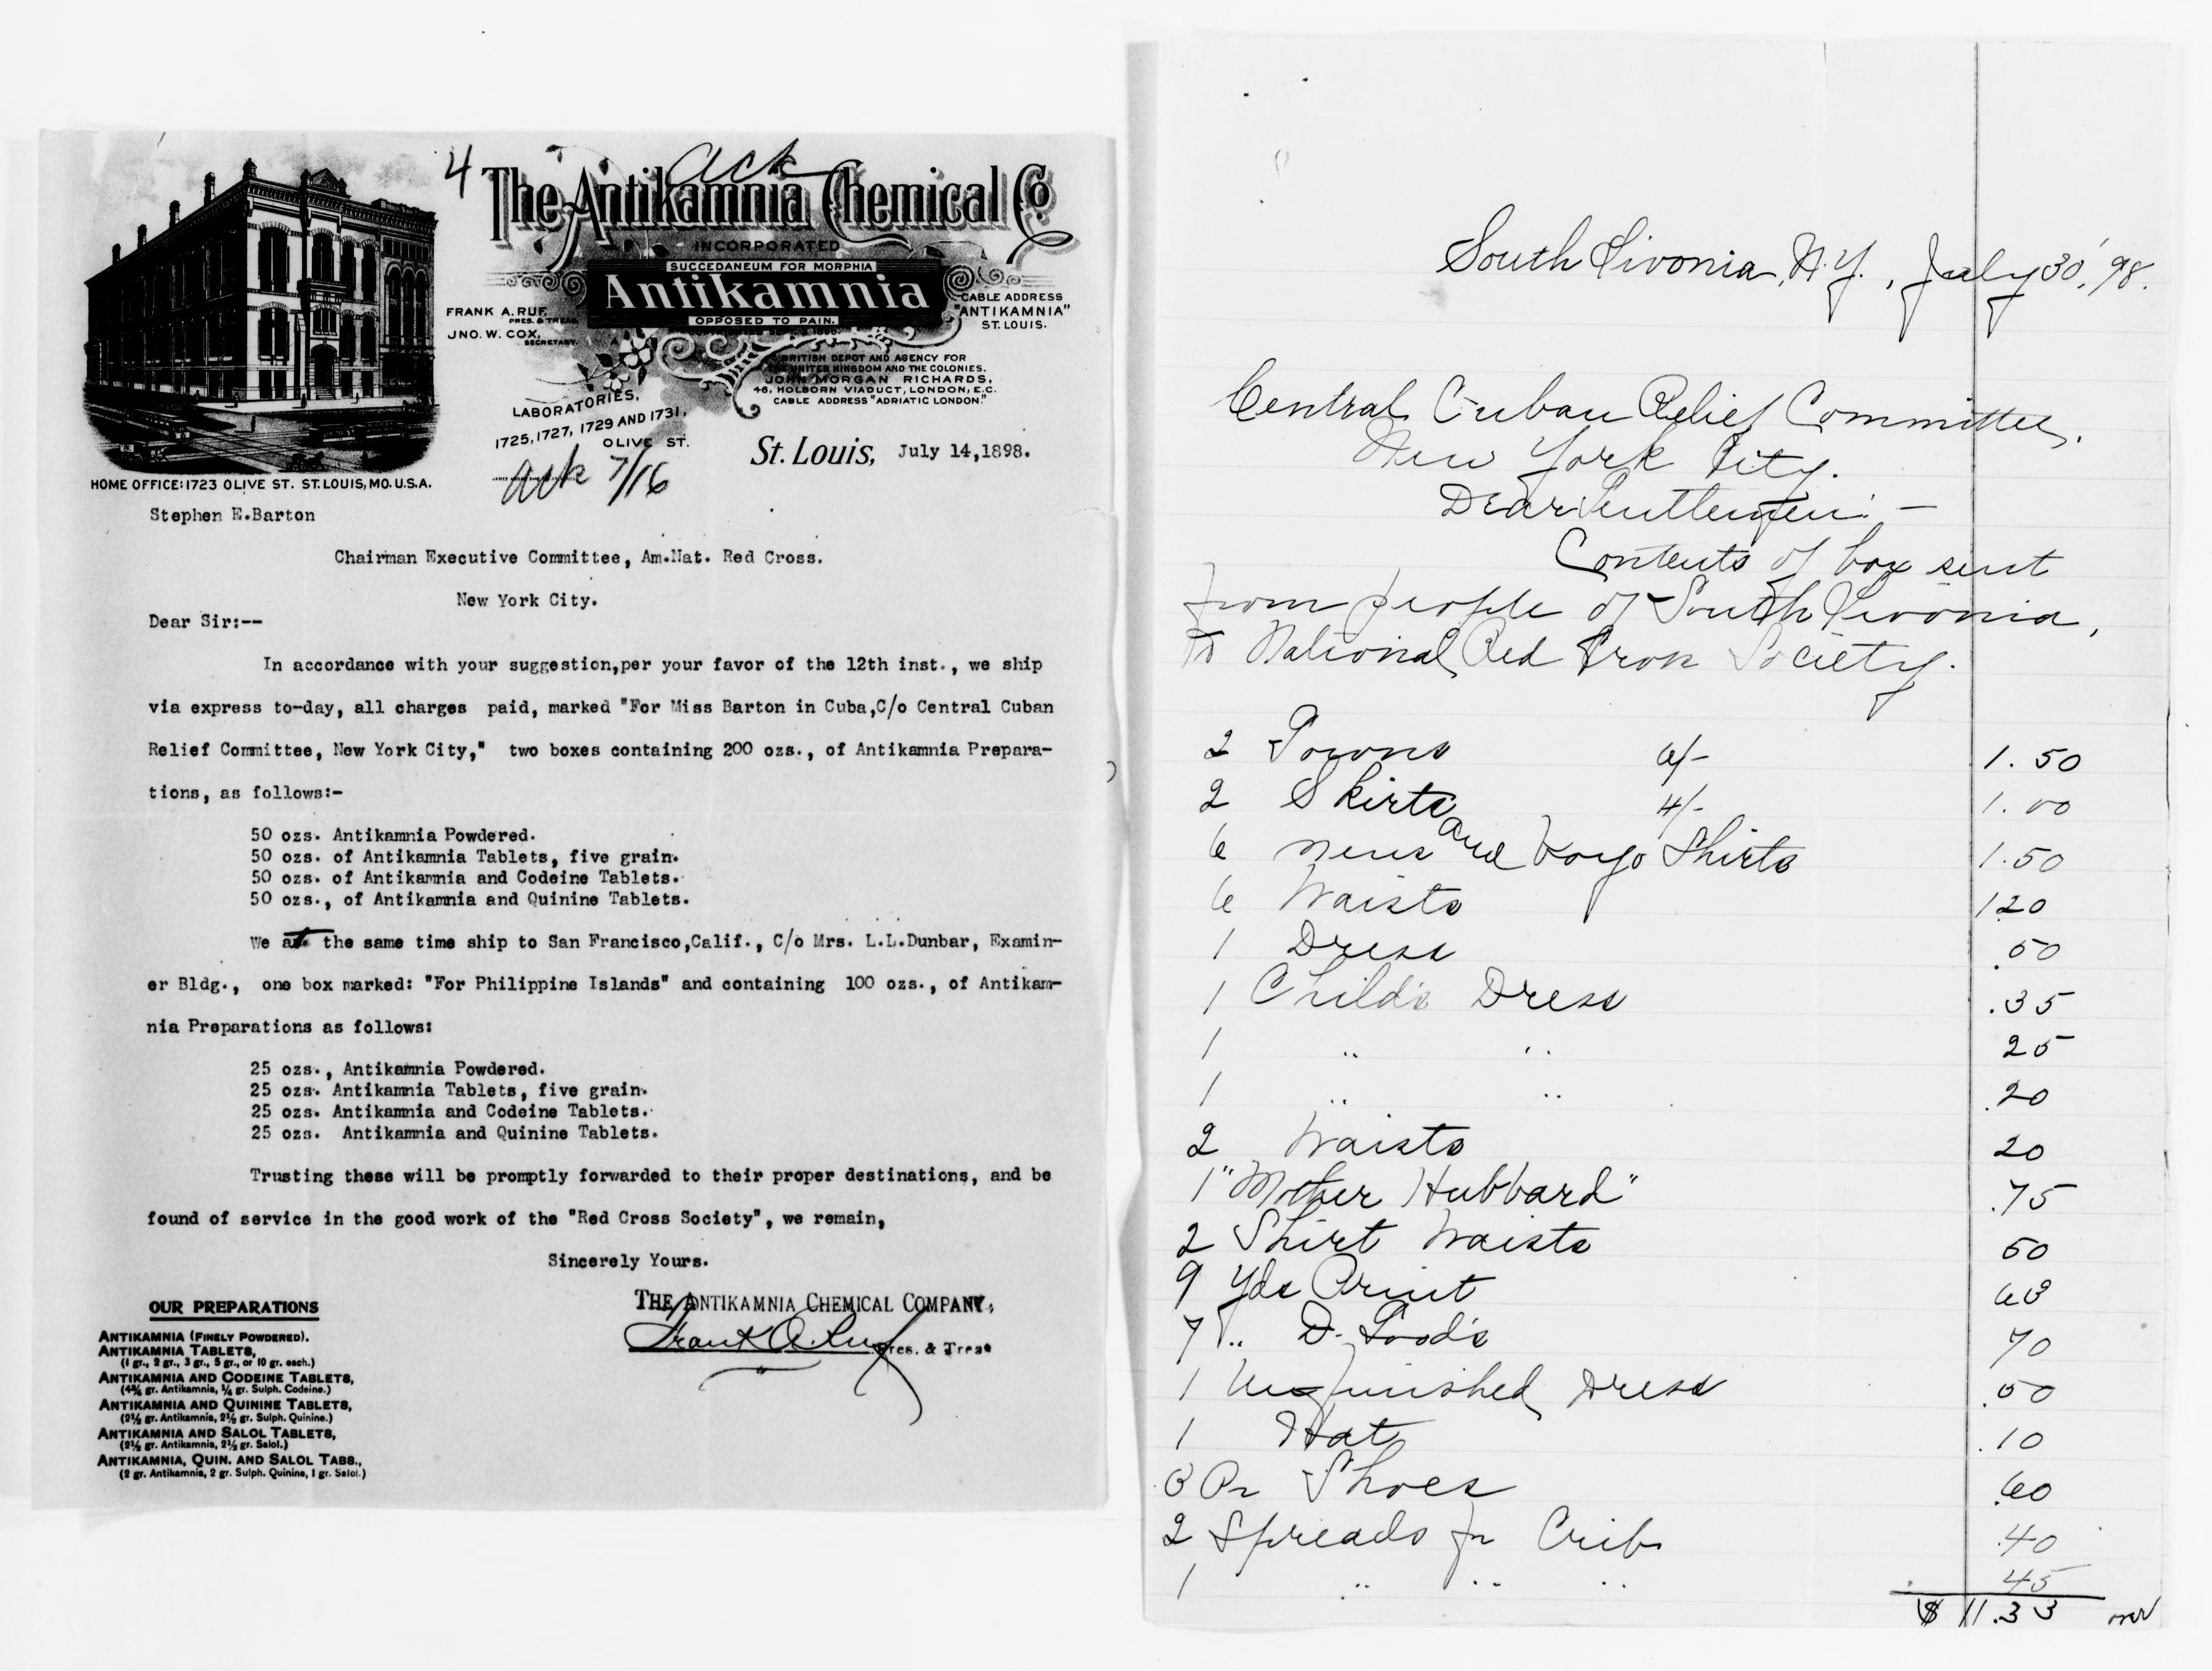 4 ack
The Antikamnia Chemical Co
INCORPORATED
SUCCEDANEUM FOR MORPHIA
Antikamnia
OPPOSED TO PAIN.
FRANK A. RUF,
PRES. & TREAS.
JNO. W. COX,
SECRETARY.
CABLE ADDRESS
"ANTIKAMNIA"
ST. LOUIS.
BRITISH DEPOT AND AGENCY FOR
THE UNITED KINGDOM AND THE COLONIES.
JOHN MORGAN RICHARDS,
46, HOLBORN VIADUCT, LONDON, E.C.
CABLE ADDRESS "ADRIATIC LONDON."
LABORATORIES,
1725, 1727, 1729 AND 1731,
OLIVE ST.
ack 7/16
St. Louis, July 14,1898.
HOME OFFICE: 1723 OLIVE ST. ST. LOUIS, MO. U.S.A.
Stephen E.Barton
Chairman Executive Committee, Am.Nat. Red Cross.
New York City.
Dear Sir:--
In accordance with your suggestion,per your favor of the 12th inst., we ship
via express to-day, all charges paid, marked "For Miss Barton in Cuba,C/o Central Cuban
Relief Committee, New York City," two boxes containing 200 ozs., of Antikamnia Prepara-
tions, as follows:-
50 ozs. Antikamnia Powdered.
50 ozs. of Antikamnia Tablets, five grain.
50 ozs. of Antikamnia and Codeine Tablets.
50 ozs., of Antikamnia and Quinine Tablets.
We at the same time ship to San Francisco,Calif., C/o Mrs. L.L.Dunbar, Examin-
er Bldg., one box marked: "For Philippine Islands" and containing 100 ozs., of Antikam-
nia Preparations as follows:
25 ozs., Antikamnia Powdered.
25 ozs. Antikamnia Tablets, five grain.
25 ozs. Antikamnia and Codeine Tablets.
25 ozs. Antikamnia and Quinine Tablets.
Trusting these will be promptly forwarded to their proper destinations, and be
found of service in the good work of the "Red Cross Society", we remain,
Sincerely Yours.
THE ANTIKAMNIA CHEMICAL COMPANY,
Frank A. Ruf Pres. & Treas
OUR PREPARATIONS
ANTIKAMNIA (FINELY POWDERED).
ANTIKAMNIA TABLETS,
(1 gr., 2 gr., 3 gr., 5 gr., or 10 gr. each.)
ANTIKAMNIA AND CODEINE TABLETS,
(4¾ gr. Antikamnia, ¼ gr. Sulph. Codeine.)
ANTIKAMNIA AND QUININE TABLETS,
(2½ gr. Antikamnia, 2½ gr. Sulph. Quinine.)
ANTIKAMNIA AND SALOL TABLETS,
(2½ gr. Antikamnia, 2½ gr. Salol.)
ANTIKAMNIA, QUIN. AND SALOL TABS.,
(2 gr. Antikamnia, 2 gr. Sulph. Quinine, 1 gr. Salol.)
South Livonia, N.Y., July 30, '98.
Central Cuban Relief Committee,
New York City.
Dear Gentlemen: –
Contents of box sent
from people of South Livonia,
to National Red Cross Society.
2 Gowns 6/- 1.50
2 Skirts 4/- 1.00
6 mens and boys Shirts 1.50
6 Waists 1 20
1 Dress .50
1 Child's Dress .35
1 " " 25
1 " " .20
2 Waists 20
1 "Mother Hubbard" .75
2 Shirt Waists 50
9 Yds Print 63
7 " D. Goods 70
1 Unfinished Dress .50
1 Hat .10
3 Pr Shoes .60
2 Spreads for Crib .40
1 " " " 45
$ 11.33 over